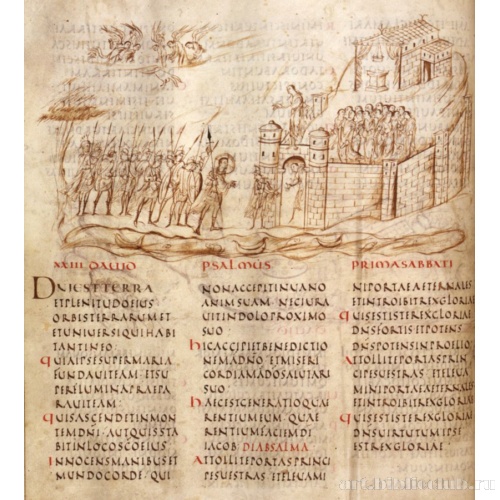 XXIII DAUID
DNI EST TERRA
ET PLENITUDO EIUS
ORBIS TERRARUM ET
ET UNIUERSI QUI HABI
TANT IN EO
QUIA IPSE SUPER MARIA
FUNDAUIT EAM ET SU
PER FLUMINA PRAEPA
RAUIT EAM
QUIS ASCENDIT IN MON
TEM DNI AUT QUIS STA
BIT IN LOCO SCO EIUS
INNOCENS MANIBUS ET
MUNDO CORDE QUI
PSALMUS
NON ACCEPIT IN UANO
ANIM SUAM NEC IURA
UIT IN DOLO PROXIMO
SUO
HIC ACCIPIET BENEDICTIO
NEM A DNO ET MISERI
CORDIAM A DO SALUTARI
SUO
HAEC EST GENERATIO QUAE
RENTIUM EUM QUAE
RENTIUM FACIEM DI
IACOB DIABSALMA
ATTOLLITE PORTAS PRINCI
PES UESTRAS ET ELEUAMI
PRIMA SABBATI
NI PORTAE AETERNALES
ET INTROIBIT REX GLORIAE
QUIS EST ISTE REX GLORIAE
DNS FORTIS ET POTENS
DNS POTENS IN PROELIO
ATTOLLITE PORTAS PRIN
CIPES UESTRAS ET ELEUA
MINI PORTAE AETERNALES
ET INTROIBIT REX GLORIAE
QUIS EST ISTE REX GLORIAE
DNS UIRTUTUM IPSE
EST REX GLORIAE